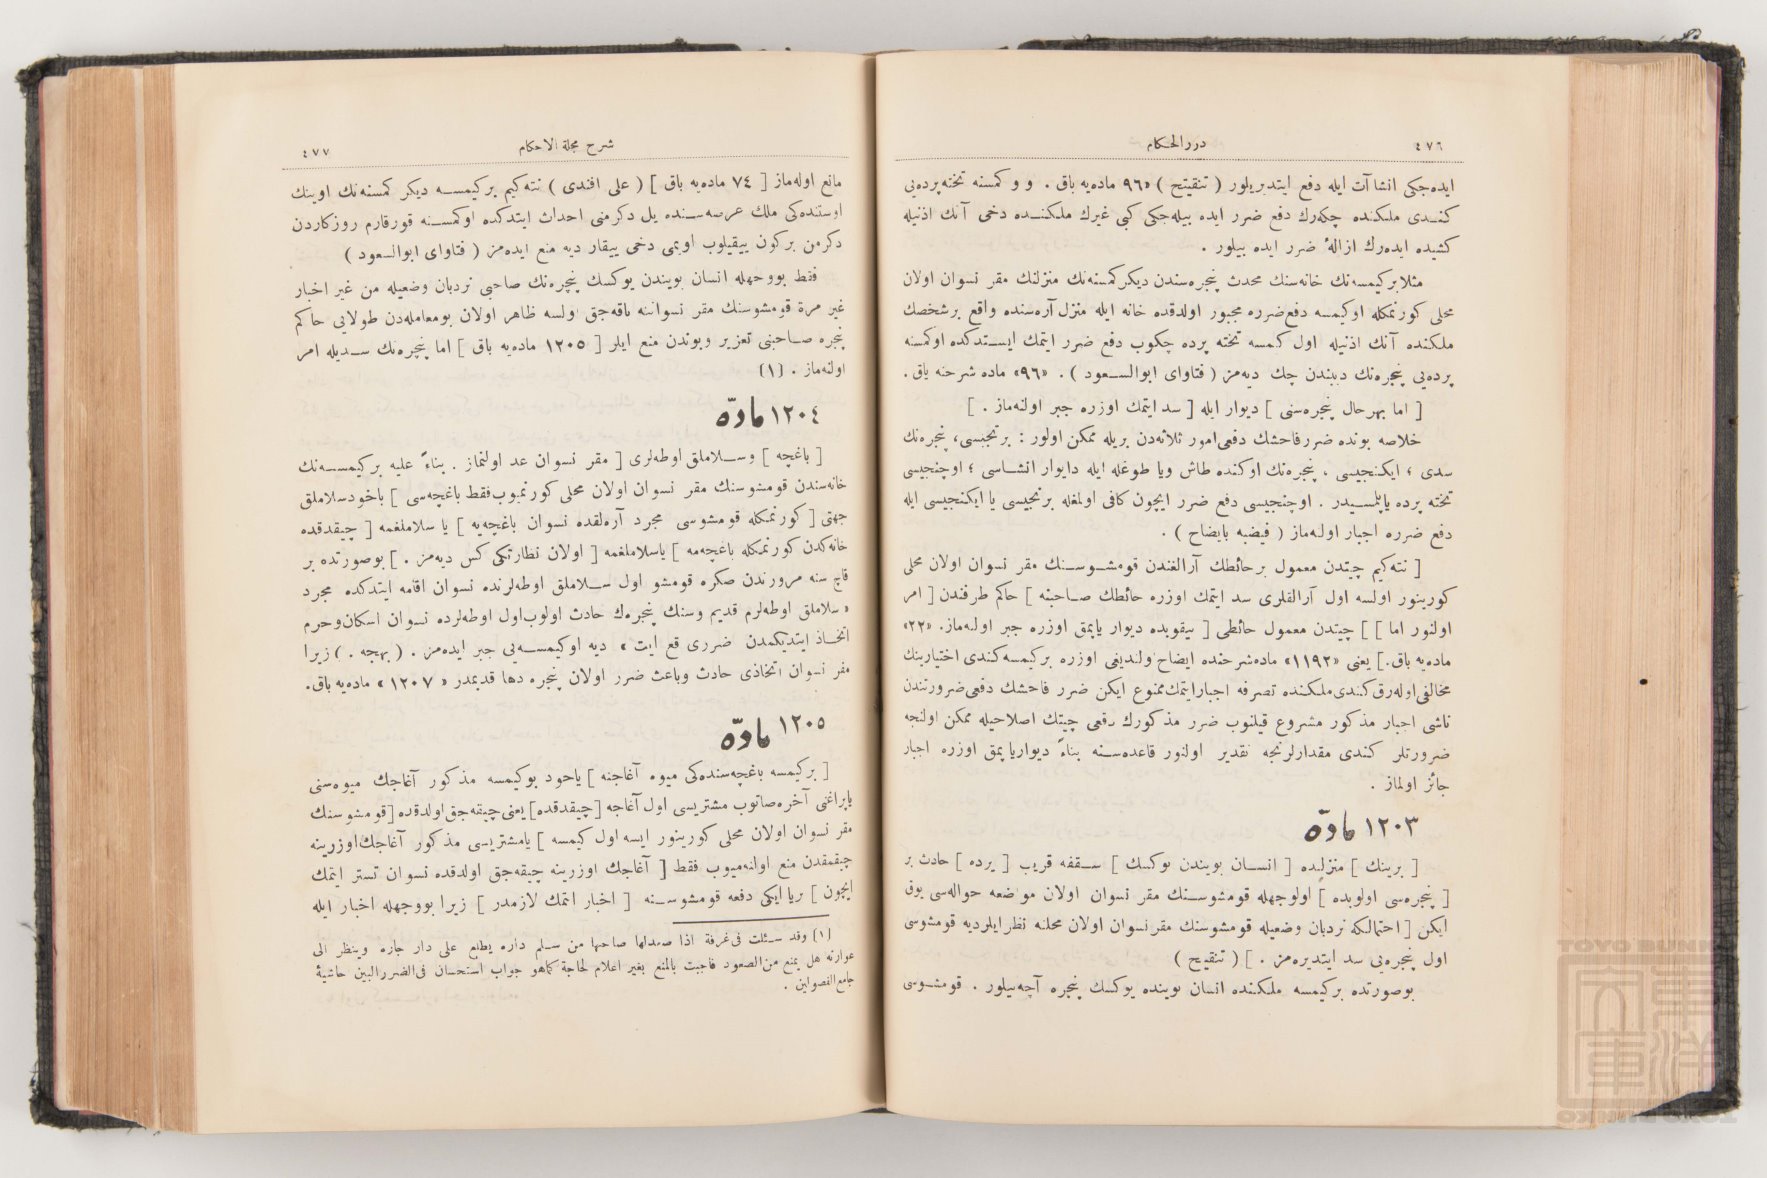 ٤٧٦
دررالحكام
ايده‌جكى انشاآت ايله دفع ايتديريلور ( تنقيح ) «٩٦ ماده‌يه باق . و و كمسنه تخته‌پرده‌يى
كندى ملكنده چكه‌رك دفع ضرر ايده بيله‌جكى كبى غيرك ملكنده دخى آنك اذنيله
كشيده ايده‌رك ازالهٔ ضرر ايده بيلور .
مثلا بركيمسه‌نك خانه‌سنك محدث پنجره‌سندن ديكر كمسنه‌نك منزلنك مقر نسوان اولان
محلى كورنمكله اوكيمسه دفع ضرره مجبور اولدقده خانه ايله منزل آره‌سنده واقع برشخصك
ملكنده آنك اذنيله اول كمسه تخته پرده چكوب دفع ضرر ايتمك ايستدكده اوكمسنه
پرده‌يى پنجره‌نك ديبندن چك ديه‌مز ( فتاواى ابوالسعود ) . «٩٦» ماده شرحنه باق .
[ اما بهرحال پنجره‌سنى ] ديوار ايله [ سد ايتمك اوزره جبر اولنه‌ماز . ]
خلاصه بونده ضررفاحشك دفعى امور ثلاثه‌دن بريله ممكن اولور : برنجيسى، پنجره‌نك
سدى ؛ ايكنجيسى ، پنجره‌نك اوكنده طاش ويا طوغله ايله دايوار انشاسى ؛ اوچنجيسى
تخته پرده ياپلمسيدر . اوچنجيسى دفع ضرر ايچون كافى اولمغله برنجيسى يا ايكنجيسى ايله
دفع ضرره اجبار اولنه‌ماز ( فيضيه بايضاح ) .
[ نته‌كيم چيتدن معمول برحائطك آرالغندن قومشوسنك مقر نسوان اولان محلى
كورينور اولسه اول آرالقلرى سد ايتمك اوزره حائطك صاحبنه ] حاكم طرفندن [ امر
اولنور اما ] ] چيتدن معمول حائطى [ ييقوبده ديوار ياپمق اوزره جبر اولنه‌ماز. «٢٢»
ماده‌يه باق. ] يعنى «١١٩٢» ماده شرحنده ايضاح اولنديغى اوزره بركيمسه كندى اختيارينك
مخالفى اوله‌رق كندى ملكنده تصرفه اجبار ايتمك ممنوع ايكن ضرر فاحشك دفعى ضرورتندن
ناشى اجبار مذكور مشروع قيلنوب ضرر مذكورك دفعى چيتك اصلاحيله ممكن اولنجه
ضرورتلر كندى مقدارلرنجه تقدير اولنور قاعده‌سنه بناءً ديوار ياپمق اوزره اجبار
جائز اولماز .
١٢٠٣ مادّه
[ برينك ] منزلنده [ انسان بويندن يوكسك ] سقفه قريب [ يرده ] حادث بر
[ پنجره‌سى اولوبده ] اولوجهله قومشوسنك مقر نسوان اولان موضعه حواله‌سى يوق
ايكن [ احتمالكه نردبان وضعيله قومشوسنك مقر نسوان اولان محلنه نظر ايلر ديه قومشوسى
اول پنجره‌يى سد ايتديره‌مز . ] ( تنقيح )
بوصورتده بركيمسه ملكنده انسان بوينده يوكسك پنجره آچه‌بيلور . قومشوسى
شرح مجلة الاحكام
٤٧٧
مانع اوله‌ماز [ ٧٤ ماده‌يه باق ] ( على افندى ) نته‌كيم بركيمسه ديكر كمسنه‌نك اوينك
اوستنده‌كى ملك عرصه‌سنده يل دكرمنى احداث ايتدكده اوكمسنه قورقارم روزكاردن
دكرمن بركون ييقيلوب اويمى دخى ييقار ديه منع ايده‌مز ( فتاواى ابوالسعود )
فقط بووجهله انسان بويندن يوكسك پنچره‌نك صاحبى نردبان وضعيله من غير اخبار
غير مرة قومشوسنك مقر نسواننه باقه‌جق اولسه ظاهر اولان بومعامله‌دن طولايى حاكم
پنجره صاحبنى تعزير وبوندن منع ايلر [ ١٢٠٥ ماده‌يه باق ] اما پنچره‌نك سديله امر
اولنه‌ماز . (١)
١٢٠٤ مادّه
[ باغچه ] وسلاملق اوطه‌لرى [ مقر نسوان عد اولنماز . بناءً عليه بركيمسه‌نك
خانه‌سندن قومشوسنك مقر نسوان اولان محلى كورنميوب فقط باغچه‌سى ] ياخود سلاملق
جهتى [ كورنمكله قومشوسى مجرد آره‌لقده نسوان باغچه‌يه ] يا سلاملغمه [ چيقدقده
خانه‌كدن كورنمكله باغچه‌مه ] ياسلاملغمه [ اولان نظارتكى كس ديه‌مز . ] بوصورتده بر
قاچ سنه مرورندن صكره قومشو اول سلاملق اوطه‌لرنده نسوان اقامه ايتدكده مجرد
« سلاملق اوطه‌لرم قديم وسنك پنجره‌ك حادث اولوب اول اوطه‌لرده نسوان اسكان وحرم
اتخاذ ايتديكمدن ضررى قع ايت » ديه اوكيمسه‌يى جبر ايده‌مز . ( بهجه . ) زيرا
مقر نسوان اتخاذى حادث وباعث ضرر اولان پنجره دها قديمدر « ١٢٠٧ » ماده‌يه باق.
١٢٠٥ مادّه
[ بركيمسه باغچه‌سنده‌كى ميوه آغاجنه ] ياخود بوكيمسه مذكور آغاجك ميوه‌سنى
ياپراغنى آخره صاتوب مشتريسى اول آغاجه [ چيقدقده ] يعنى چيقه‌جق اولدقده [ قومشوسنك
مقر نسوان اولان محلى كورينور ايسه اول كيمسه ] يامشتريسى مذكور آغاجك اوزرينه
چيقمقدن منع اولنه‌ميوب فقط [ آغاجك اوزرينه چيقه‌جق اولدقده نسوان تستر ايتمك
ايچون ] بريا ايكى دفعه قومشوسنه [ اخبار ايتمك لازمدر ] زيرا بووجهله اخبار ايله
(١) وقد سئلت فى غرفة اذا صعدلها صاحبها من سلم داره يطلع على دار جاره وينظر الى
عوراته هل يمنع من الصعود فاجبت بالمنع بغير اعلام لحاجة كماهو جواب استحسان فى الضرر البين حاشيهٔ
جامع الفصولين .
TOYO BUNKO